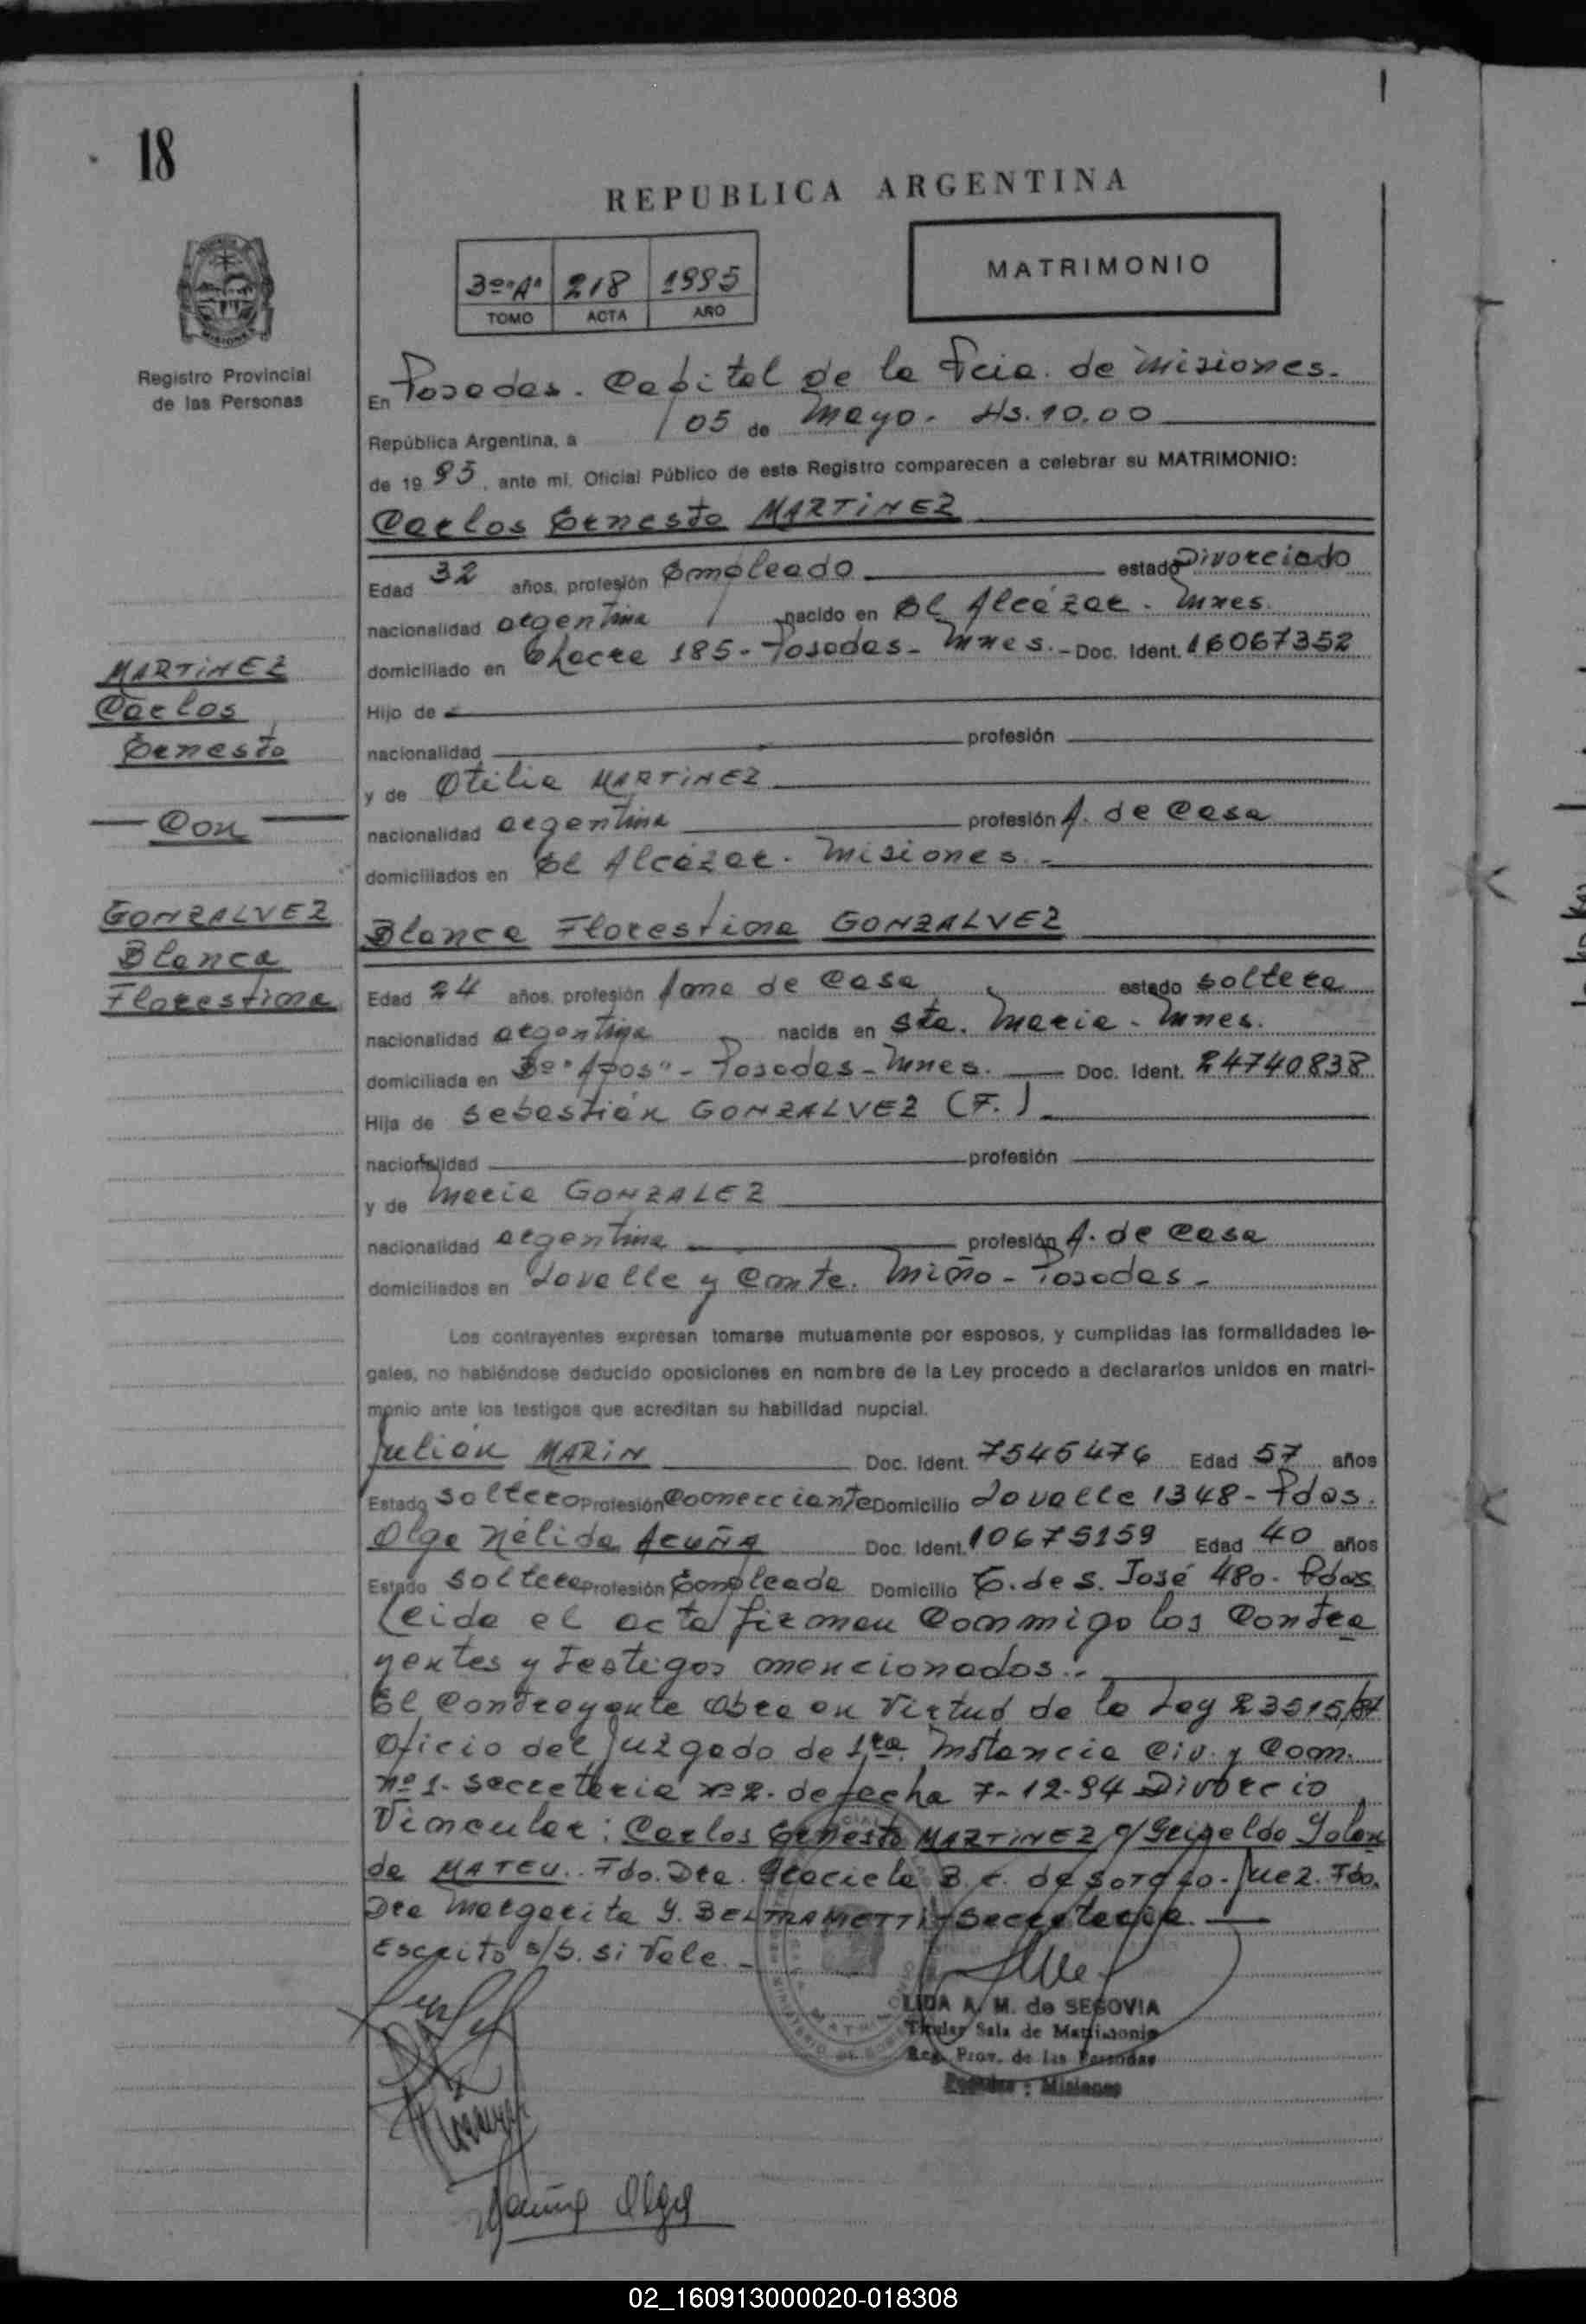 18
REPUBLICA ARGENTINA
MATRIMONIO
3º "A" 218 1995
TOMO ACTA AÑO
MISIONES
Registro Provincial
de las Personas
En Posadas. Capital de la Pcia. de Misiones.
República Argentina, a 05 de Mayo. Hs. 10,00
de 19 95, ante mí, Oficial Público de este Registro comparecen a celebrar su MATRIMONIO:
Carlos Ernesto MARTINEZ
Edad 32 años, profesión Empleado estado Divorciado
nacionalidad argentina nacido en El Alcázar. Mnes.
domiciliado en Chacra 185 - Posadas - Mnes. - Doc. Ident. 16067352
Hijo de
nacionalidad profesión
y de Otilia MARTINEZ
nacionalidad argentina profesión A. de Casa
domiciliados en El Alcázar. Misiones.-
MARTINEZ
Carlos
Ernesto
Con
GONZALVEZ
Blanca
Florestina
Blanca Florestina GONZALVEZ
Edad 24 años, profesión Ama de Casa estado soltera
nacionalidad argentina nacida en Sta. María - Mnes.
domiciliada en Bº "Apos" - Posadas - Mnes. Doc. Ident. 24740838
Hija de Sebastián GONZALVEZ (F.)
nacionalidad profesión
y de María GONZALEZ
nacionalidad argentina profesión A. de Casa
domiciliados en Lavalle y Cmte. Miño - Posadas -
Los contrayentes expresan tomarse mutuamente por esposos, y cumplidas las formalidades le-
gales, no habiéndose deducido oposiciones en nombre de la Ley procedo a declararlos unidos en matri-
monio ante los testigos que acreditan su habilidad nupcial.
Julián MARIN Doc. Ident. 7545476 Edad 57 años
Estado soltero Profesión Comerciante Domicilio Lavalle 1348 - Pdas.
Olga Nélida ACUÑA Doc. Ident. 10675159 Edad 40 años
Estado soltera Profesión Empleada Domicilio C. de S. José 480 - Pdas
Leida el acta firman Conmigo los Contra
yentes y testigos mencionados.-
El Contrayente Obra en Virtud de la Ley 23515/87
Oficio del Juzgado de 1ra. Instancia Civ. y Com.
nº 1. Secretaria nº 2. de fecha 7-12-94 Divorcio
Vincular: Carlos Ernesto MARTINEZ c/ Griselda Yolan
da MATEU. Fdo. Dra. Graciela B. de Juez. Fdo.
Dra Margarita Y. BELTRAMETTI Secretaria.
Escrito s/b. si Vale.-
LIDA A. M. de SEGOVIA
Titular Sala de Matrimonio
Reg. Prov. de las Personas
Posadas : Misiones
Acuña Olga
02_160913000020-018308